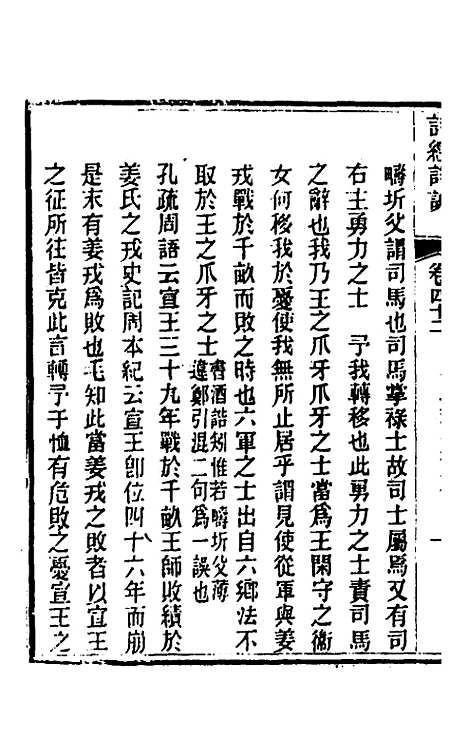 詩經詳說
卷四十三
疇圻父謂司馬也司馬掌祿士故司士屬焉又有司
右主勇力之士　予我轉移也此勇力之士責司馬
之辭也我乃王之爪牙爪牙之士當爲王閑守之衞
女何移我於憂使我無所止居乎謂見使從軍與姜
戎戰於千畝而敗之時也六軍之士出自六鄉法不
取於王之爪牙之士
書酒誥矧惟若疇圻父薄
違鄭引混二句爲一誤也
孔疏周語云宣王三十九年戰於千畝王師敗績於
姜氏之戎史記周本紀云宣王卽位四十六年而崩
是末有姜戎爲敗也毛知此當姜戎之敗者以宣王
之征所往皆克此言轉予于恤有危敗之憂宣王之